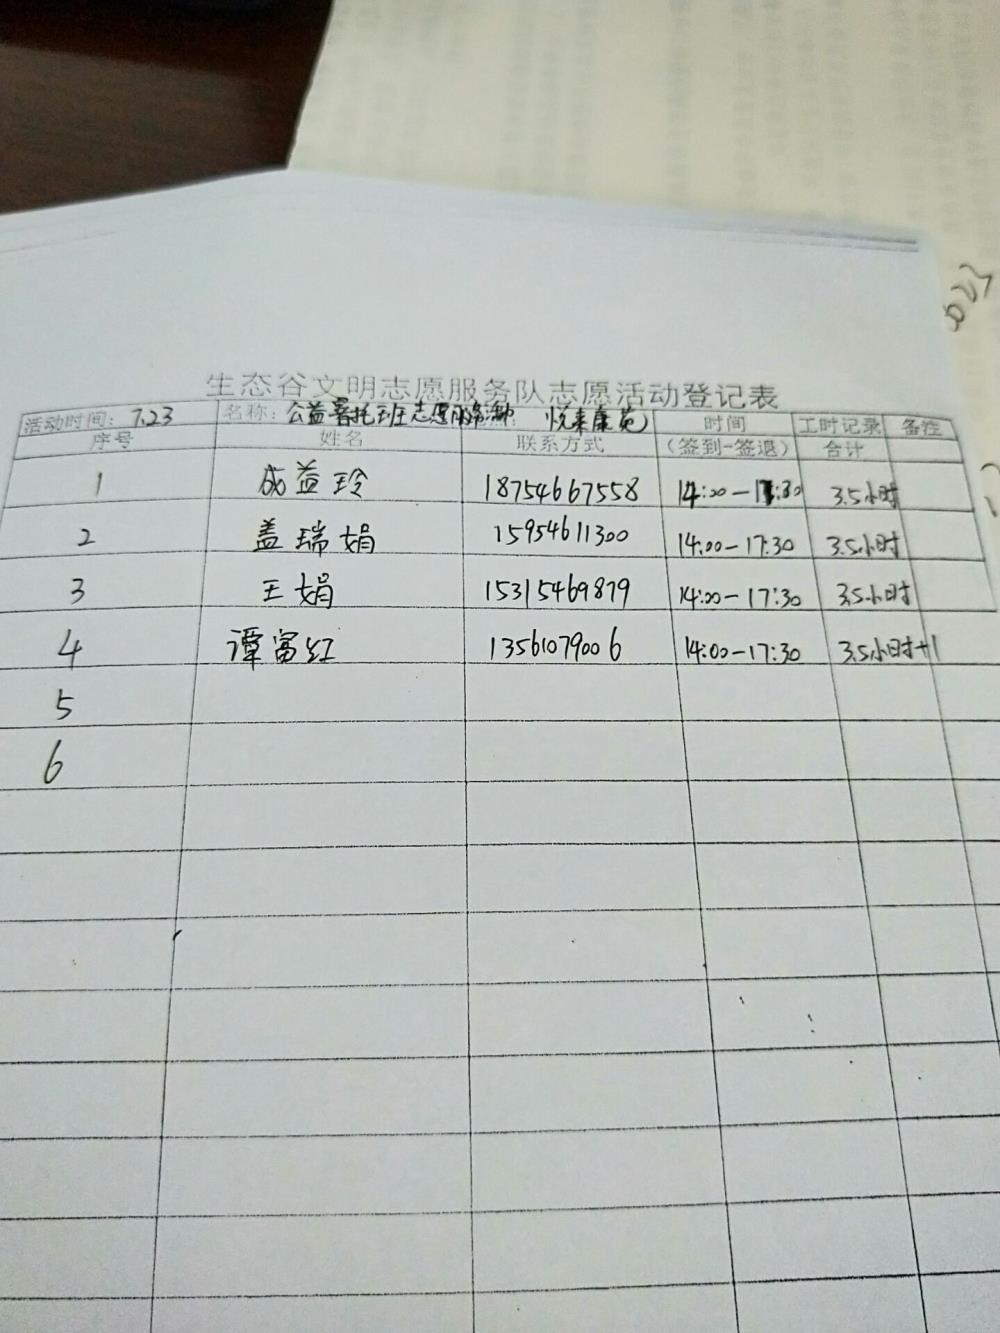 生态谷文明志愿服务队志愿活动登记表
活动时间: 7.23 名称: 公益暑托班志愿服务活动 悦来康苑
序号 姓名 联系方式 时间(签到-签退) 工时记录合计 备注
1 成益玲 18754667558 14:00-17:30 3.5小时
2 盖瑞娟 15954611300 14:00-17:30 3.5小时
3 王娟 15315469879 14:00-17:30 3.5小时
4 谭富红 13561079006 14:00-17:30 3.5小时+1
5
6